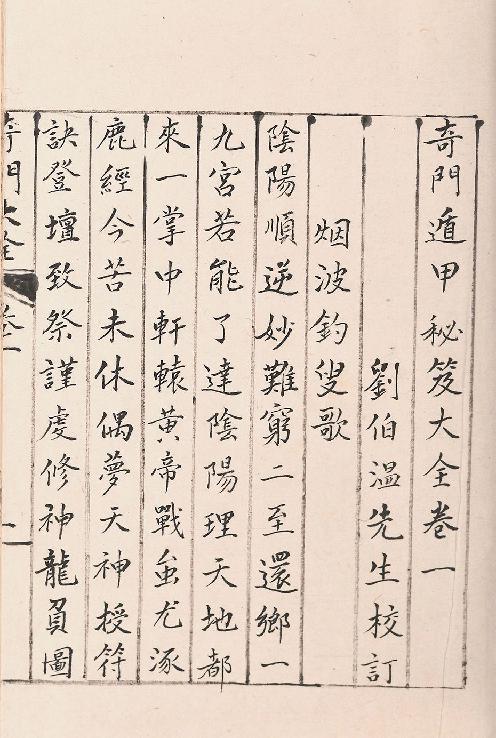 奇門遁甲秘笈大全卷一
劉伯溫先生校訂
烟波釣叟歌
陰陽順逆妙難窮二至還鄉一
九宮若能了達陰陽理天地都
來一掌中軒轅黃帝戰蚩尤涿
鹿經今苦未休偶夢天神授符
訣登壇致祭謹虔修神龍負圖
奇門大全 卷一 一